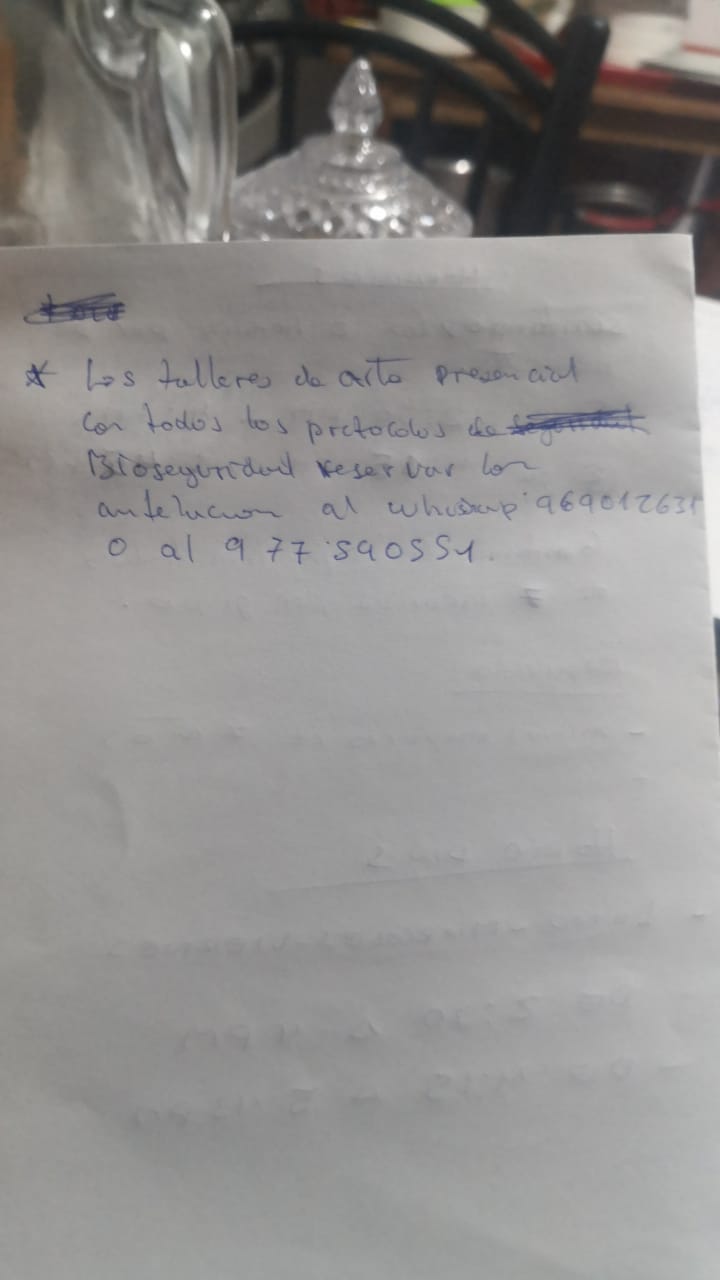 * Los talleres de arte presencial
con todos los protocolos de
Bioseguridad reservar con
antelacion al whatsap 969012631
o al 977590551.